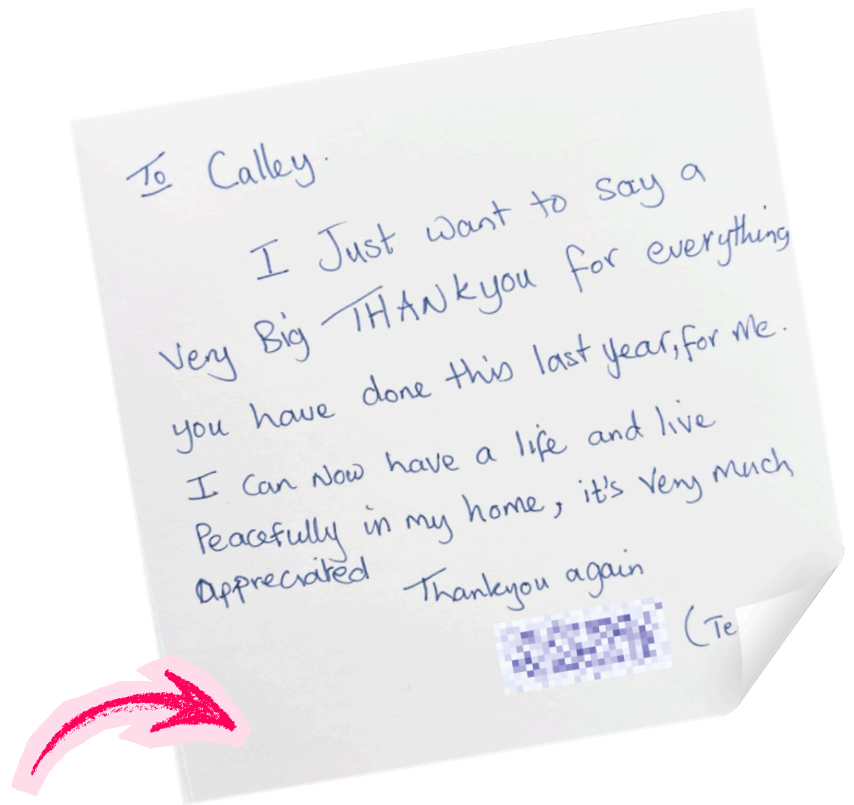 To Calley.
I Just want to say a
Very Big THANKyou for everything
you have done this last year, for Me.
I Can Now have a life and live
Peacefully in my home, it's Very much
Appreciated Thankyou again
(Te